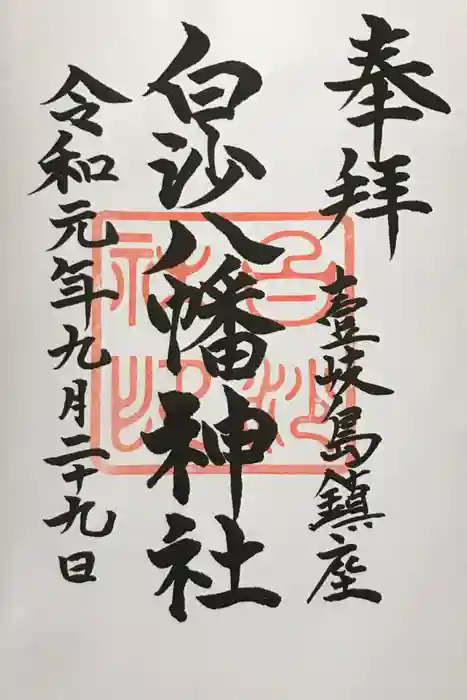 奉拝
壹岐島鎮座
白沙八幡神社
令和元年九月二十九日